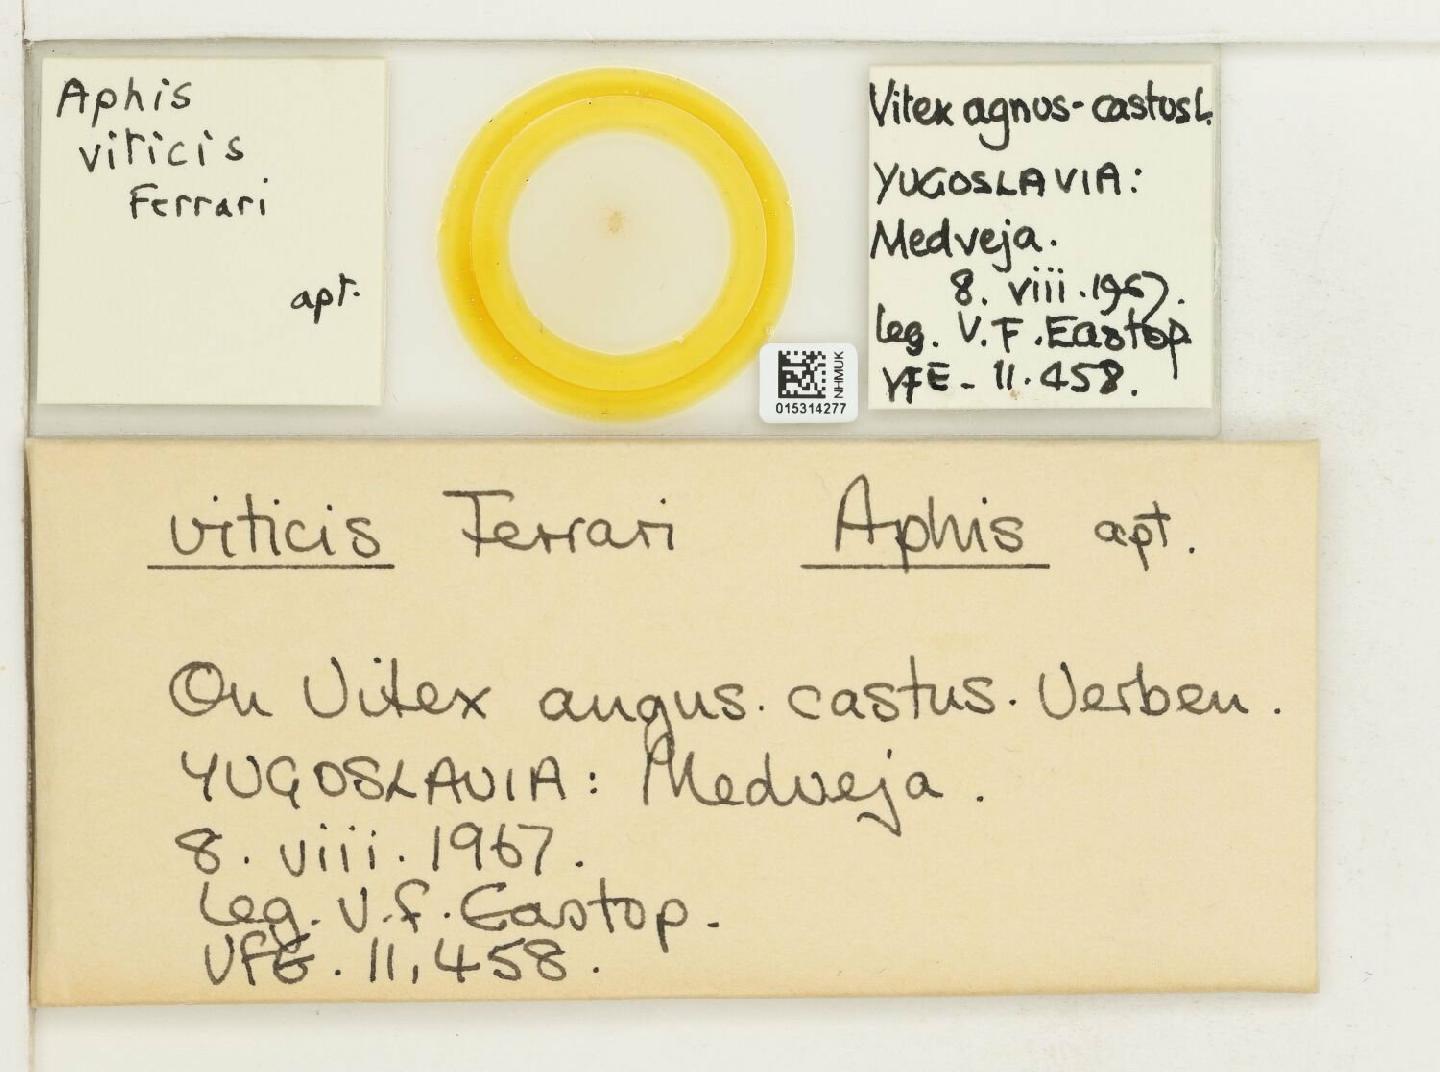 Aphis
viticis
Ferrari
apt.
Vitex agnus-castus L.
YUGOSLAVIA:
Medveja.
8. viii. 1967.
leg. V.F. Eastop
VFE - 11.458.
NHMUK
015314277
viticis Ferrari Aphis apt.
On Vitex angus. castus. Verben.
YUGOSLAVIA: Medveja.
8. viii. 1967.
Leg. V.F. Eastop.
VFE. 11,458.